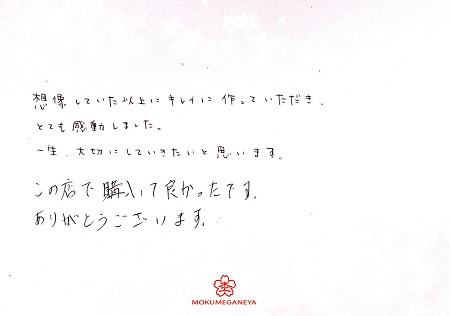 想像していた以上にキレイに作っていただき、
とても感動しました。
一生、大切にしていきたいと思います。
この店で購入して良かったです。
ありがとうございます。
MOKUMEGANEYA